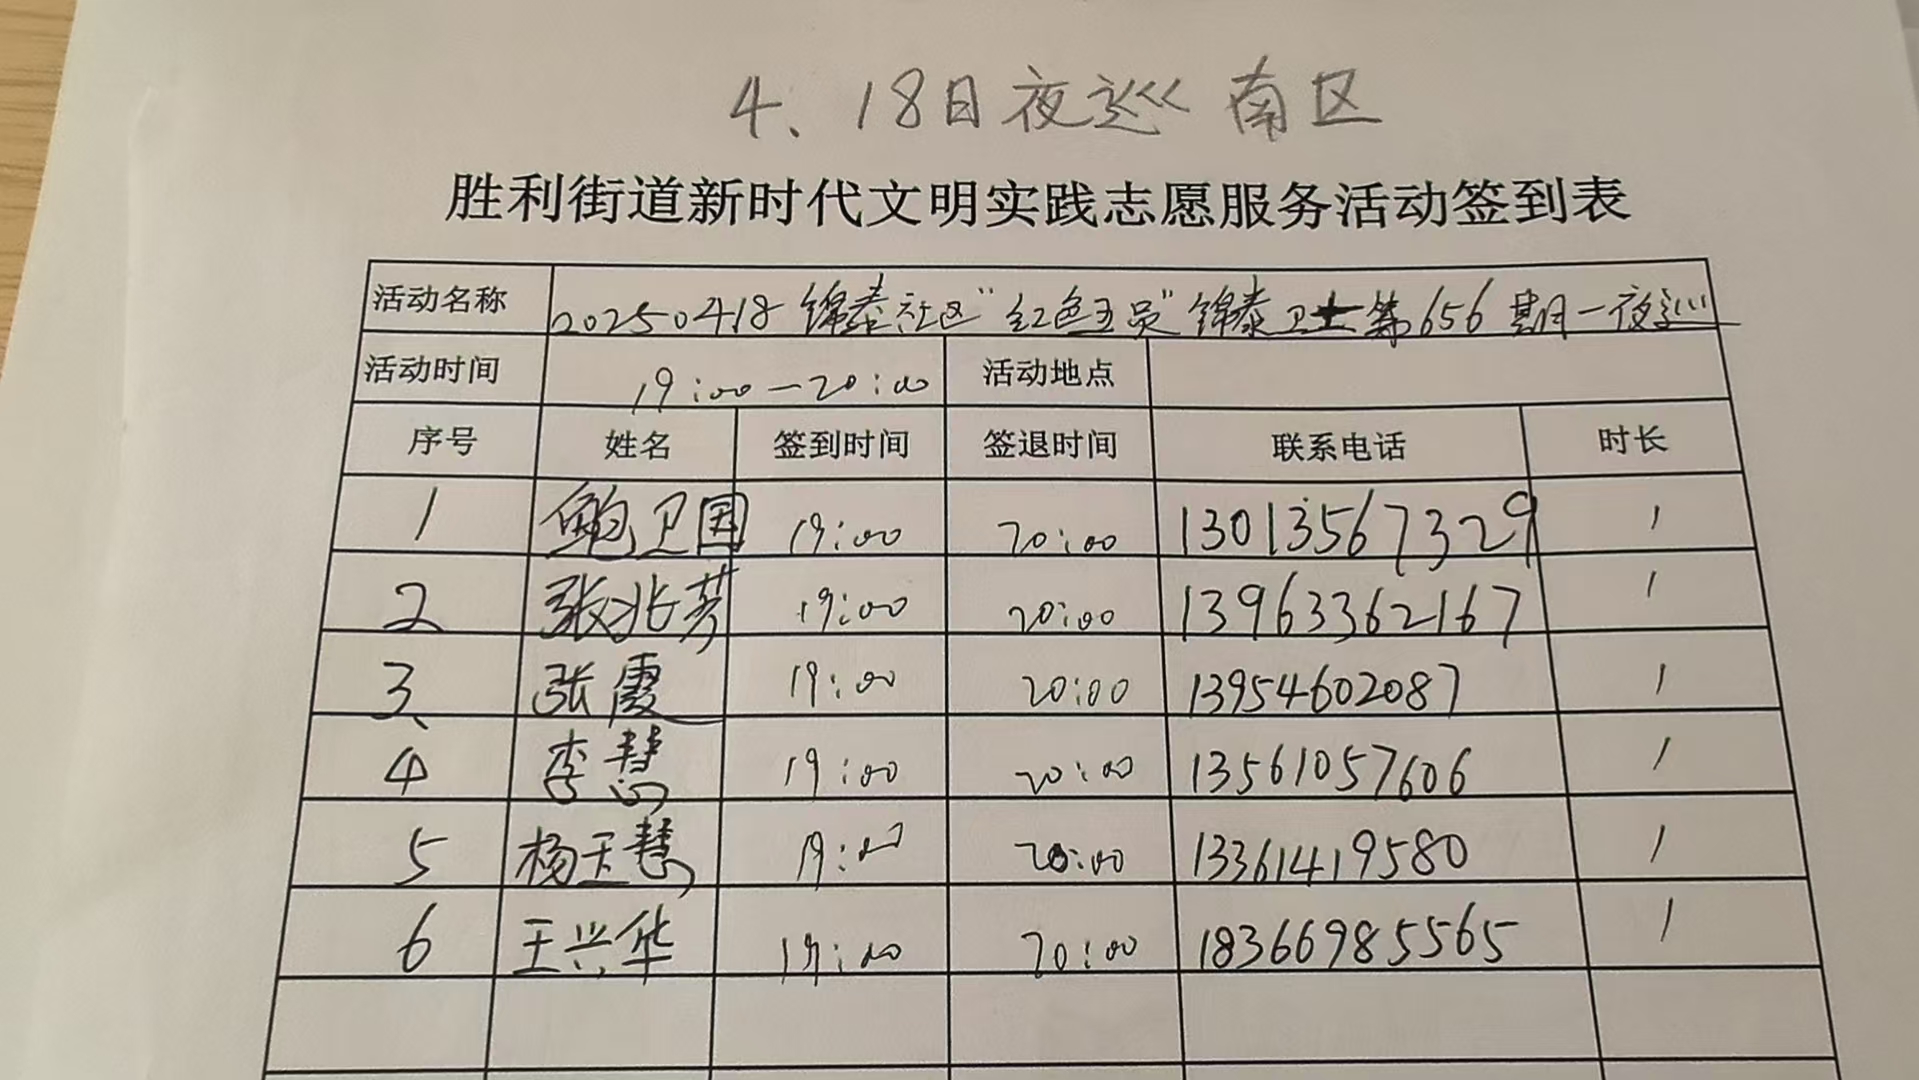 4、18日夜巡 南区
胜利街道新时代文明实践志愿服务活动签到表
活动名称 20250418锦泰社区“红色五员”锦泰卫士第656期一夜巡
活动时间 19:00—20:00 活动地点
序号 姓名 签到时间 签退时间 联系电话 时长
1 鲍卫国 19:00 20:00 13013567329 1
2 张兆芳 19:00 20:00 13963362167 1
3、 张霞 19:00 20:00 13954602087 1
4 李慧 19:00 20:00 13561057606 1
5 杨玉慧 19:00 20:00 13361419580 1
6 王兴华 19:00 20:00 18366985565 1